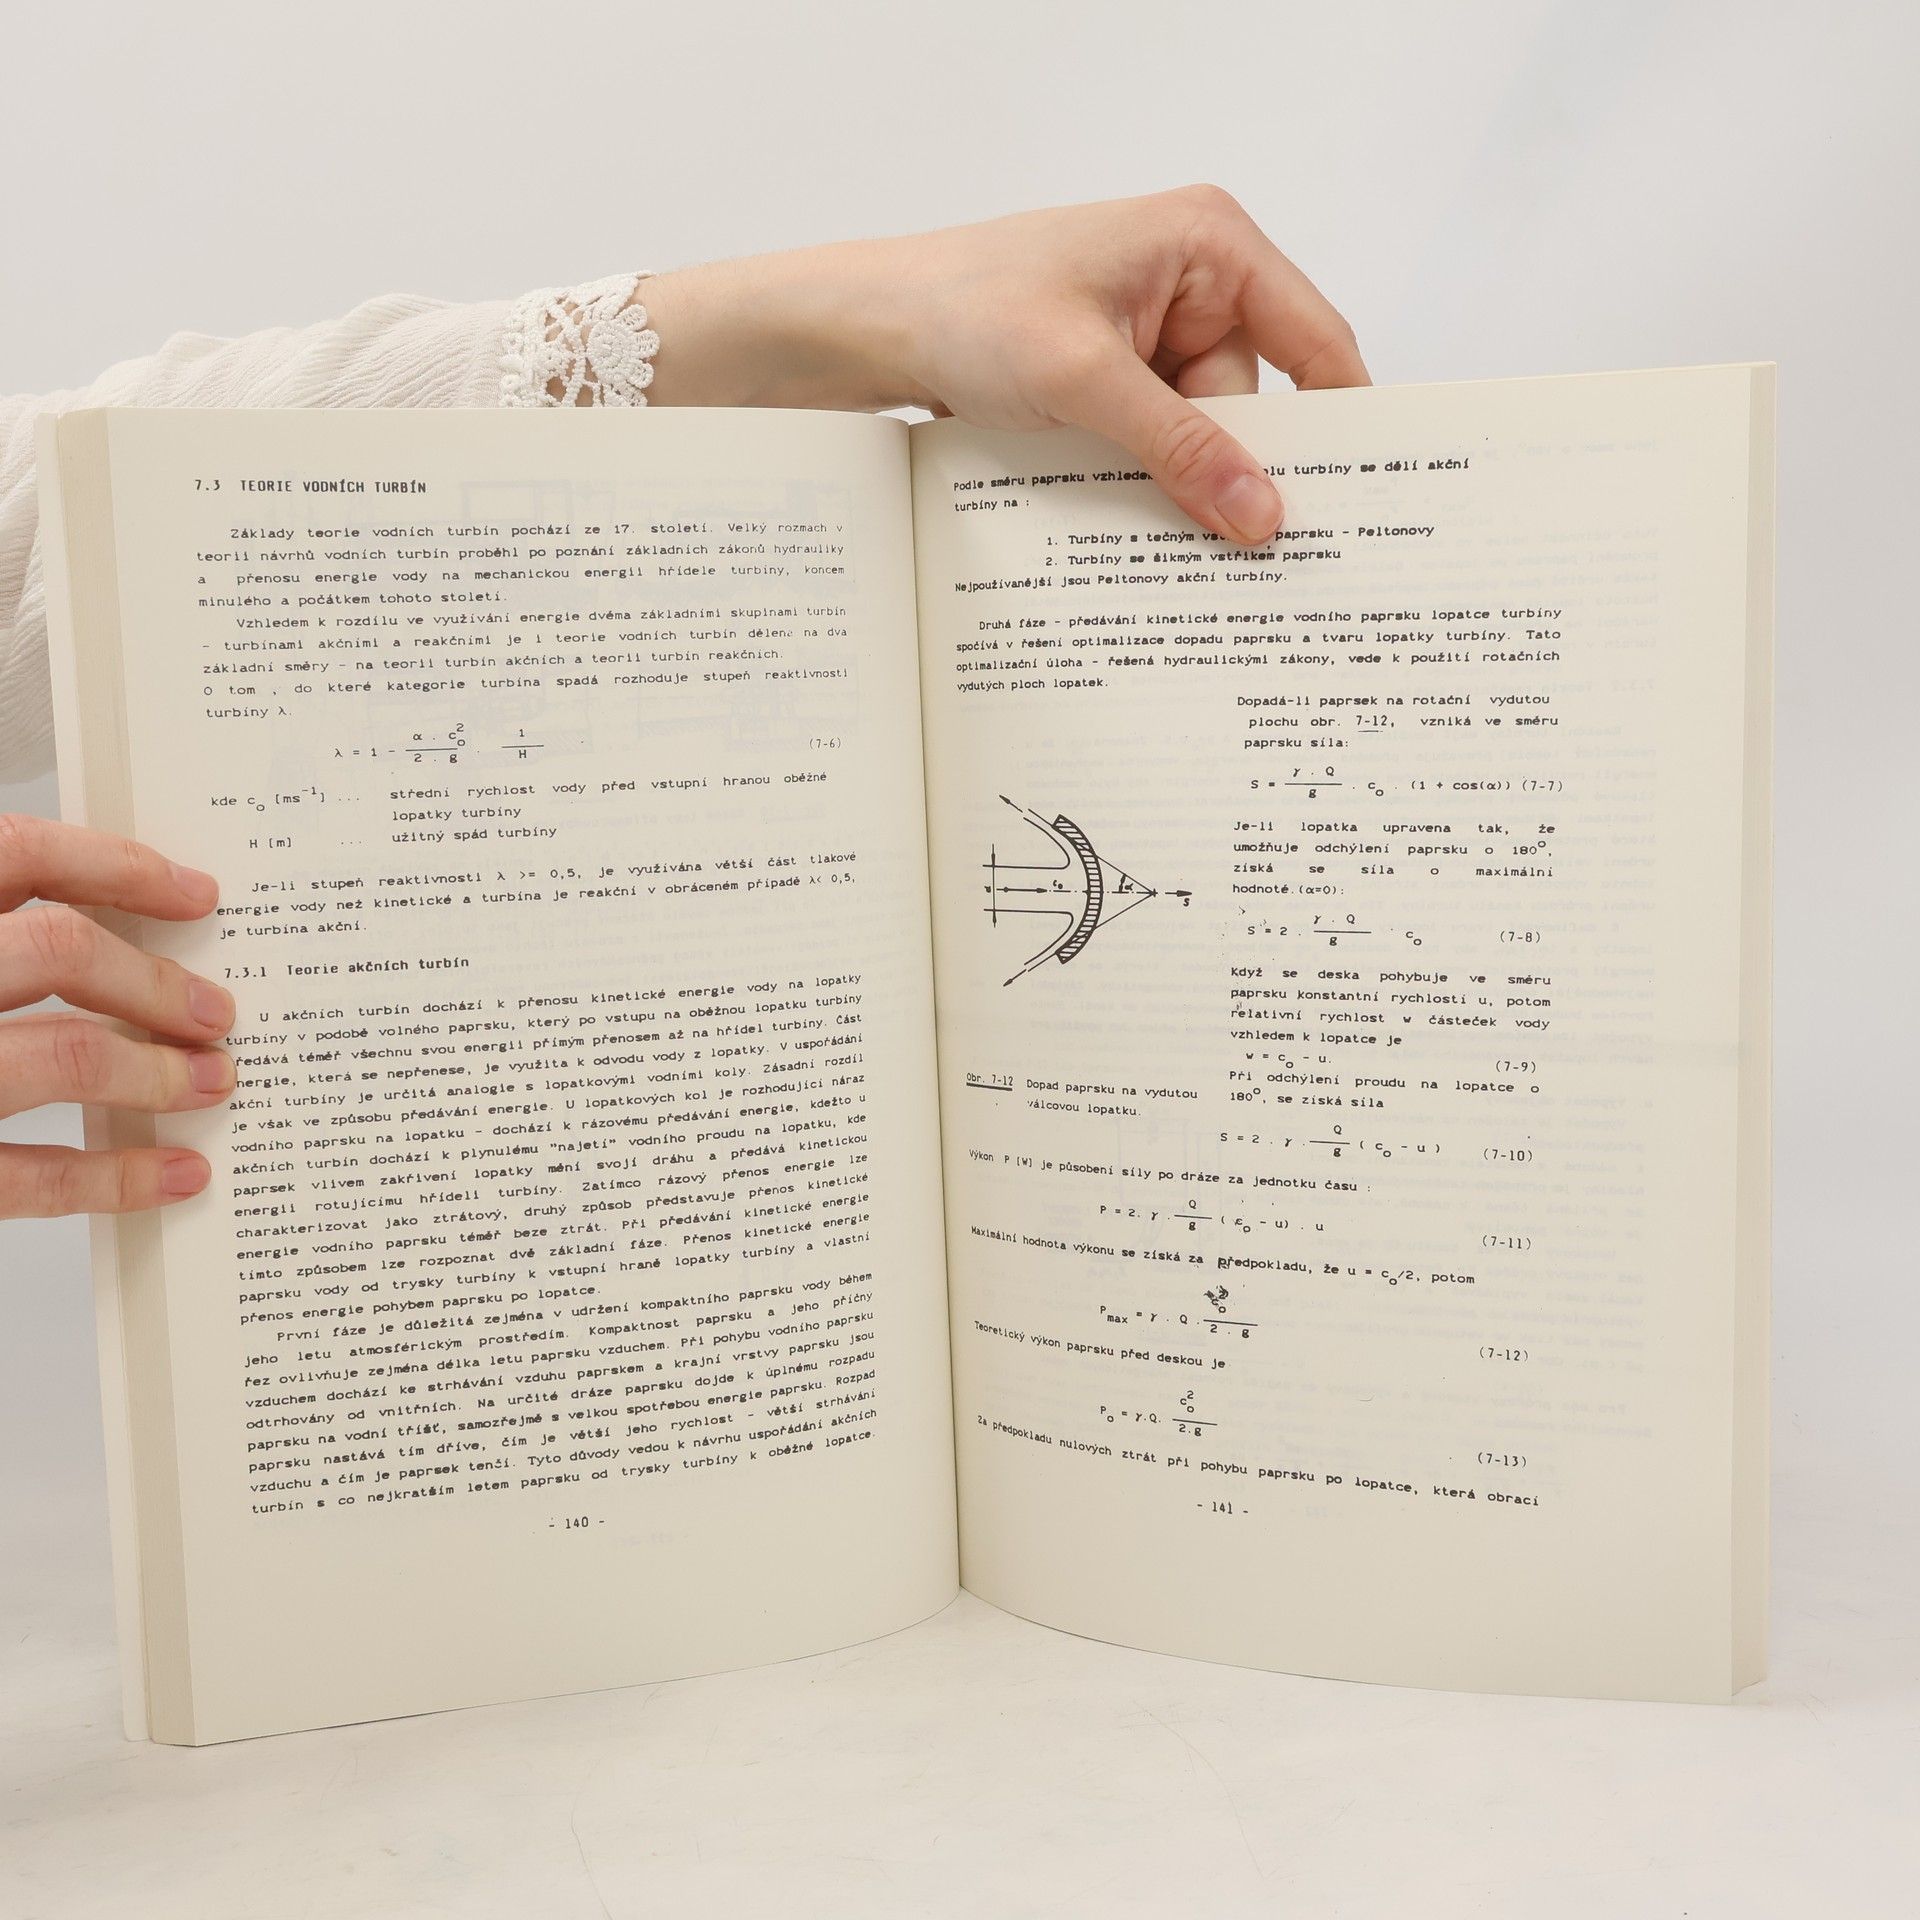 7.3 TEORIE VODNÍCH TURBÍN
Základy teorie vodních turbín pochází ze 17. století. Velký rozmach v
teorii návrhů vodních turbín proběhl po poznání základních zákonů hydrauliky
a přenosu energie vody na mechanickou energii hřídele turbíny, koncem
minulého a počátkem tohoto století.
Vzhledem k rozdílu ve využívání energie dvěma základními skupinami turbín
- turbínami akčními a reakčními je i teorie vodních turbín dělena na dva
základní směry - na teorii turbín akčních a teorii turbín reakčních.
O tom , do které kategorie turbína spadá rozhoduje stupeň reaktivnosti
turbíny λ.
λ = 1 - α . c₀² / 2 . g . 1 / H (7-6)
kde c₀ [ms⁻¹] ... střední rychlost vody před vstupní hranou oběžné
lopatky turbíny
H [m] ... užitný spád turbíny
Je-li stupeň reaktivnosti λ >= 0,5, je využívána větší část tlakové
energie vody než kinetické a turbína je reakční v obráceném případě λ< 0,5,
je turbína akční.
7.3.1 Teorie akčních turbín
U akčních turbín dochází k přenosu kinetické energie vody na lopatky
turbíny v podobě volného paprsku, který po vstupu na oběžnou lopatku turbíny
ředává téměř všechnu svou energii přímým přenosem až na hřídel turbíny. Část
nergie, která se nepřenese, je využita k odvodu vody z lopatky. V uspořádání
akční turbíny je určitá analogie s lopatkovými vodními koly. Zásadní rozdíl
je však ve způsobu předávání energie. U lopatkových kol je rozhodující náraz
vodního paprsku na lopatku - dochází k rázovému předávání energie, kdežto u
akčních turbín dochází k plynulému "najetí" vodního proudu na lopatku, kde
paprsek vlivem zakřivení lopatky mění svojí dráhu a předává kinetickou
energii rotujícímu hřídeli turbíny. Zatímco rázový přenos energie lze
charakterizovat jako ztrátový, druhý způsob představuje přenos kinetické
energie vodního paprsku téměř beze ztrát. Při předávání kinetické energie
tímto způsobem lze rozpoznat dvě základní fáze. Přenos kinetické energie
paprsku vody od trysky turbíny k vstupní hraně lopatky turbíny a vlastní
přenos energie pohybem paprsku po lopatce.
První fáze je důležitá zejména v udržení kompaktního paprsku vody během
jeho letu atmosférickým prostředím. Kompaktnost paprsku a jeho příčný
řez ovlivňuje zejména délka letu paprsku vzduchem. Při pohybu vodního paprsku
vzduchem dochází ke strhávání vzduhu paprskem a krajní vrstvy paprsku jsou
odtrhovány od vnitřních. Na určité dráze paprsku dojde k úplnému rozpadu
paprsku na vodní tříšť, samozřejmě s velkou spotřebou energie paprsku. Rozpad
paprsku nastává tím dříve, čím je větší jeho rychlost - větší strhávání
vzduchu a čím je paprsek tenčí. Tyto důvody vedou k návrhu uspořádání akčních
turbín s co nejkratším letem paprsku od trysky turbíny k oběžné lopatce.
- 140 -
Podle směru paprsku vzhlede olu turbíny se dělí akční
turbíny na :
1. Turbíny s tečným vs paprsku - Peltonovy
2. Turbíny se šikmým vstřikem paprsku
Nejpoužívanější jsou Peltonovy akční turbíny.
Druhá fáze - předávání kinetické energie vodního paprsku lopatce turbíny
spočívá v řešení optimalizace dopadu paprsku a tvaru lopatky turbíny. Tato
optimalizační úloha - řešená hydraulickými zákony, vede k použití rotačních
vydutých ploch lopatek.
Dopadá-li paprsek na rotační vydutou
plochu obr. 7-12, vzniká ve směru
paprsku síla:
S = γ . Q / g . c₀ . (1 + cos(α)) (7-7)
Je-li lopatka upravena tak, že
umožňuje odchýlení paprsku o 180°,
získá se síla o maximální
hodnotě.(α=0):
S = 2 . γ . Q / g . c₀ (7-8)
Když se deska pohybuje ve směru
paprsku konstantní rychlostí u, potom
relativní rychlost w částeček vody
vzhledem k lopatce je
w = c₀ - u. (7-9)
Při odchýlení proudu na lopatce o
180°, se získá síla
c₀ α S
Obr. 7-12 Dopad paprsku na vydutou
válcovou lopatku.
S = 2 . γ . Q / g ( c₀ - u ) (7-10)
Výkon P [W] je působení síly po dráze za jednotku času :
P = 2. γ . Q / g ( c₀ - u) . u (7-11)
Maximální hodnota výkonu se získá za předpokladu, že u = c₀/2, potom
Pmax = γ . Q . c₀² / 2 . g (7-12)
Teoretický výkon paprsku před deskou je
P₀ = γ.Q. c₀² / 2.g (7-13)
Za předpokladu nulových ztrát při pohybu paprsku po lopatce, která obrací
- 141 -